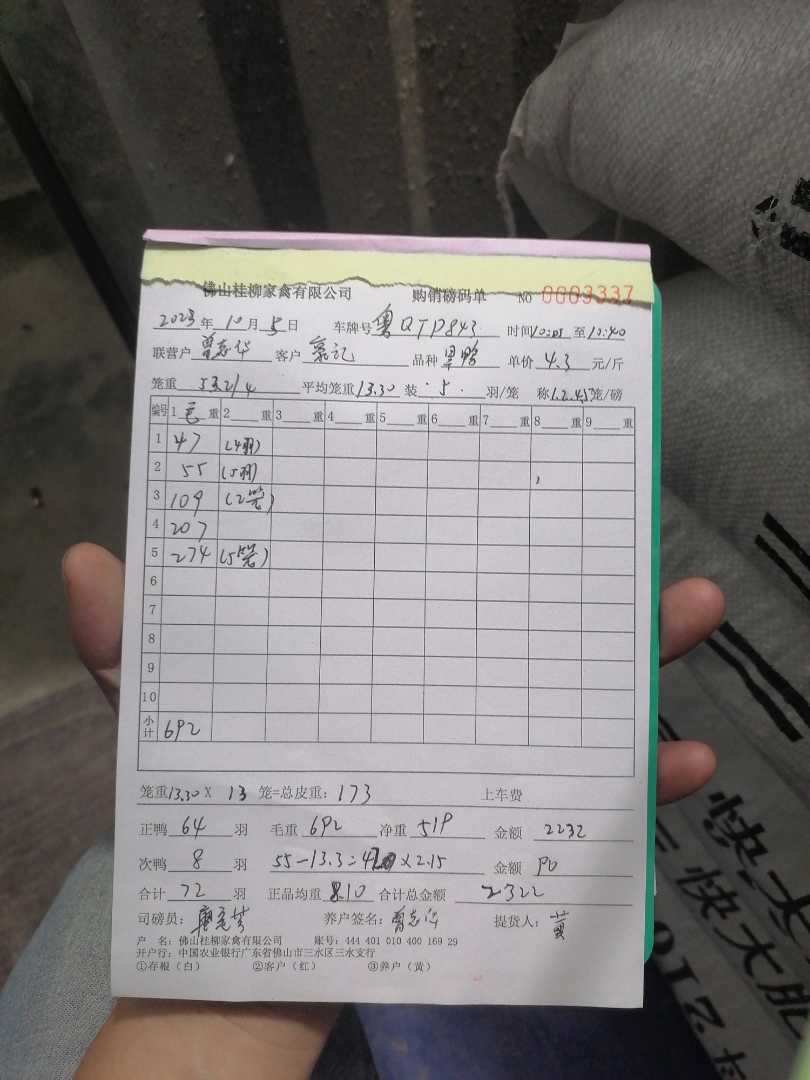 佛山桂柳家禽有限公司 购销磅码单 NO 0003337
2023年10月5日 车牌号粤QTD843 时间10:05至10:40
联营户曾志华 客户 品种 单价4.3元/斤
笼重53.2/4 平均笼重13.30装5羽/笼 称1.2.4.5笼/磅
编号 1毛重 2重 3重 4重 5重 6重 7重 8重 9重
1 47 (4羽)
2 55 (5羽)
3 109 (2笼)
4 207
5 274 (5笼)
6
7
8
9
10
小计 692
笼重13.30X13笼=总皮重:173 上车费
正鸭64羽 毛重692 净重519 金额2232
次鸭8羽 55-13.3= ×2.15 金额90
合计72羽 正品均重8.10 合计总金额2322
司磅员: 养户签名:曾志华 提货人:黄
户 名:佛山桂柳家禽有限公司 账号:444 401 010 400 169 29
开户行:中国农业银行广东省佛山市三水区三水支行
①存根(白) ②客户(红) ③养户(黄)
快大
快大肥